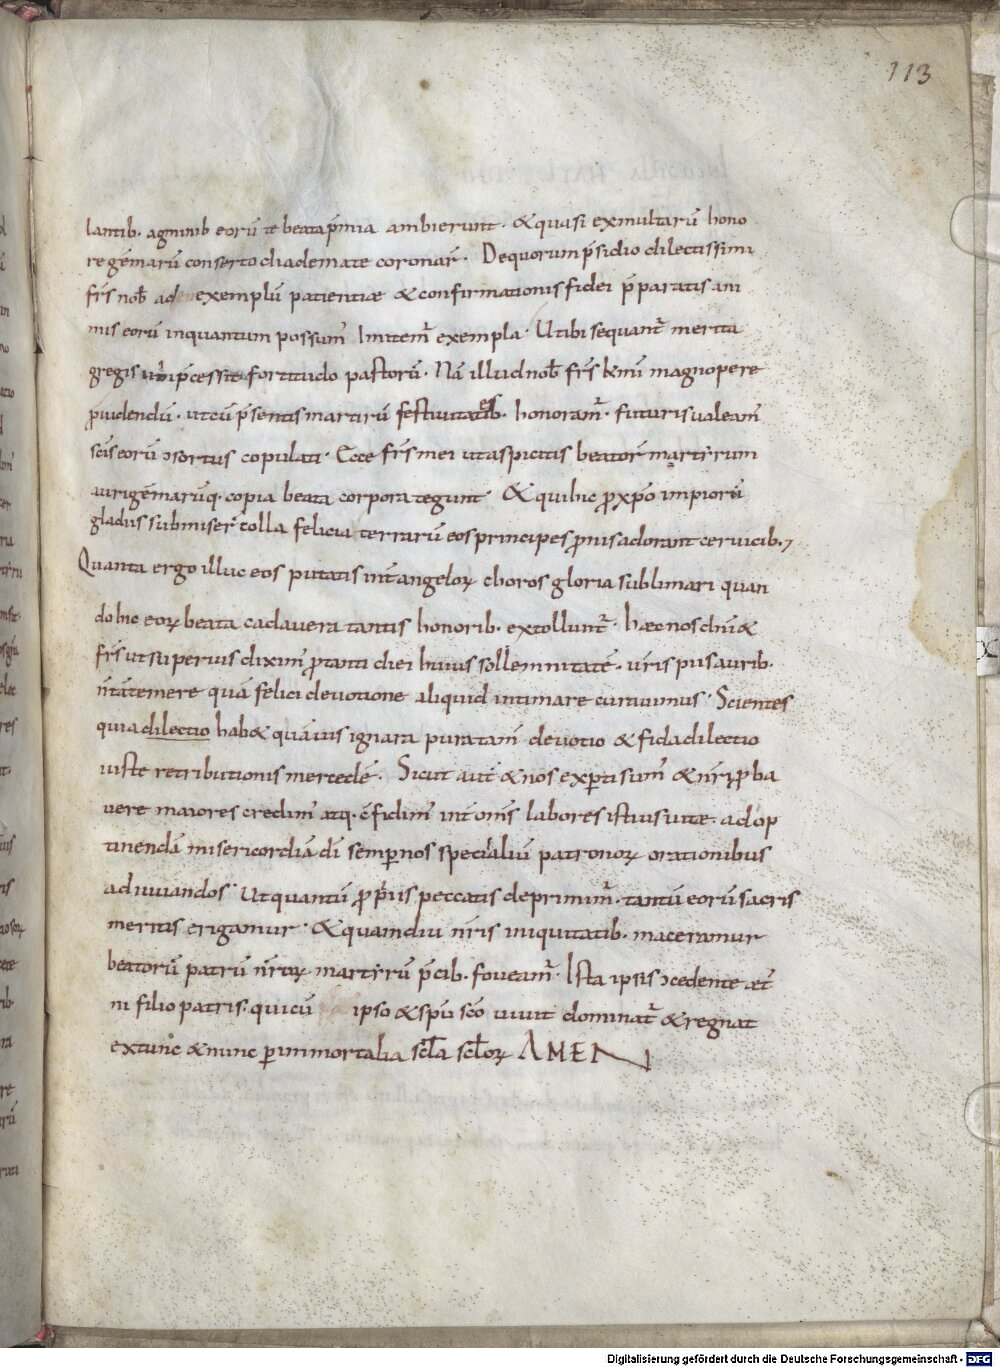 113
lantib. agminib eorū te beata p̄mia ambierunt. & quasi exmultarū hono
re gēmarū conserto diademate coronar̄. De quorum p̄sidio dilectissimi
fr̄s nob̄ ad exemplū patientiæ & confirmationis fidei p̄paratis ani
mis eorū inquantum possum̄ Imitem̄ exempla. Ut ibi sequant̄ merita
gregis p̄cessit fortitudo pastorū. Nā illud nob̄ fr̄s km̄i magnopere
p̄uidendū. ut cū p̄sentis martirū festiuitatib. honoram̄. futuris ualeam̄
sc̄is eorū ɔsortus copulati. Ecce fr̄s mei ut aspicitis beator̄ martyrum
auri gēmarūq. copia beata corpora tegunt. & qui hic ꝓ xp̄o impiorū
gladiis submiser̄ colla felicia terrarū eos principes ꝓnis adorant ceruicib.
Quanta ergo illuc eos putatis int̄ angeloꝝ choros gloria sublimari quan
do hic eoꝝ beata cadauera tantis honorib. extollunt̄. hæc nos dn̄i &
fr̄s ut superius dixim̄ ꝓ tanti diei huius sollemnitatē. ur̄is piis aurib.
n̄ tā temere quā felici deuotione aliquid intimare curauimus. Scientes
quia dilectio hab& quāuis ignara puratam̄ deuotio & fida dilectio
iuste retributionis mercedē. Sicut aut̄ & nos expti sum̄ & nr̄i ꝓba
uere maiores credim̄ atq. c̄fidim̄ int̄ om̄s labores istius uitæ. ad op
tinendā misericordiā dī semp nos specialiū patronoꝝ orationibus
adiuuandos. Ut quantū ꝓpriis peccatis deprimim̄. tantū eorū sacris
meritis erigamur. & quamdiu nr̄is iniquitatib. maceramur
beatorū patrū nr̄oꝝ martyrū p̄cib. foueam̄. Ista ipsis ɔcedente æt̄
ni filio patris. qui cū ipso & sp̄u sc̄o uiuit dominat̄ & regnat
ex tunc & nunc p inmortalia sc̄la sc̄loꝝ AMEN
Digitalisierung gefördert durch die Deutsche Forschungsgemeinschaft - DFG